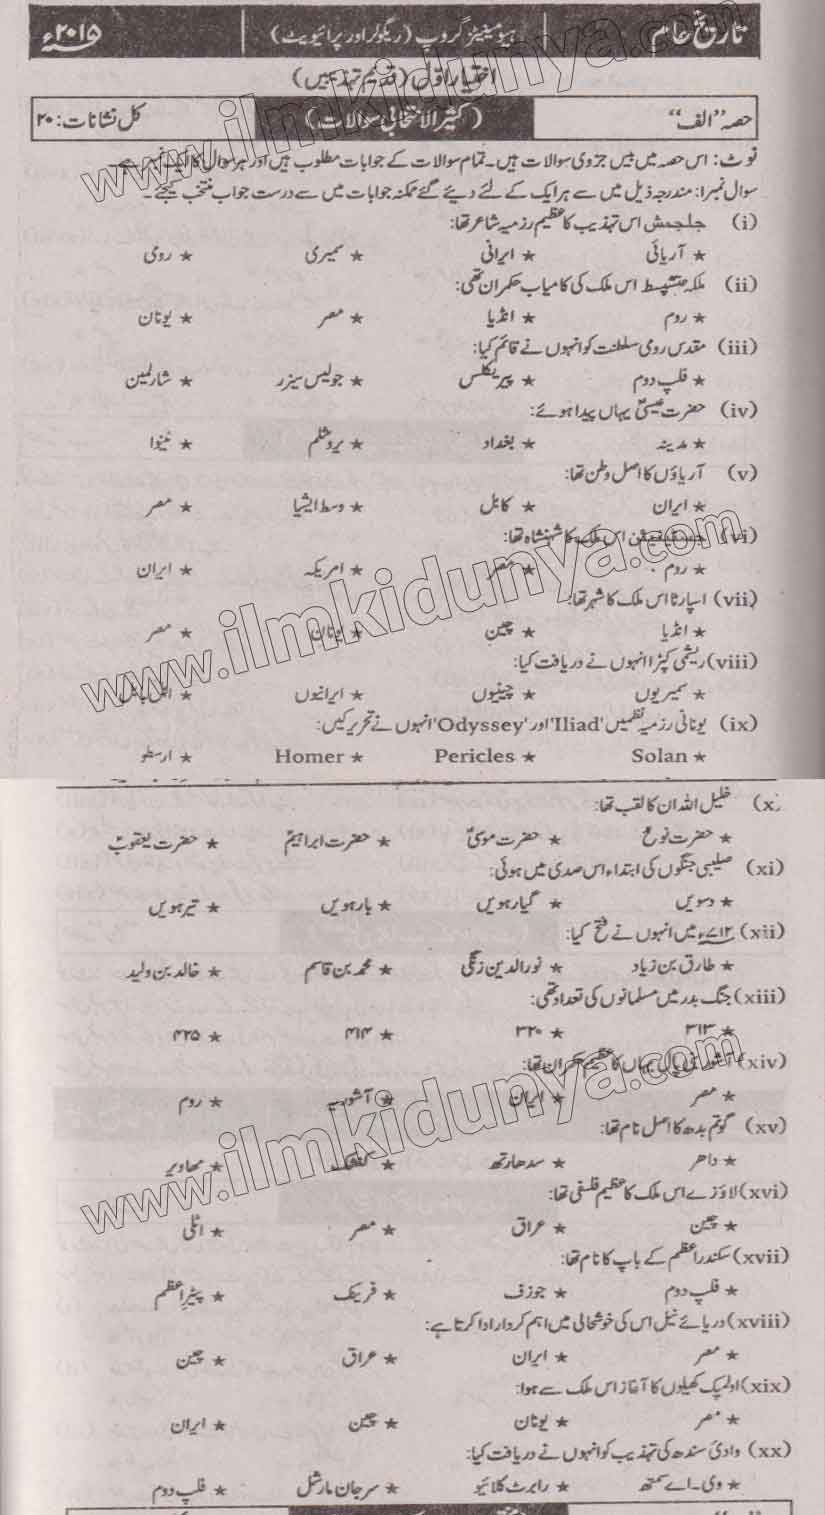 تاریخ عام ہیومینیٹیز گروپ (ریگولر اور پرائیویٹ) ۲۰۱۵ء
اختیار اوّل (قدیم تہذیبیں)
حصہ "الف" (کثیر الانتخابی سوالات) کل نشانات: ۲۰
نوٹ: اس حصہ میں بیس جزوی سوالات ہیں۔ تمام سوالات کے جوابات مطلوب ہیں اور ہر سوال کا ایک نمبر ہے۔
سوال نمبر۱: مندرجہ ذیل میں سے ہر ایک کے لئے دیئے گئے ممکنہ جوابات میں سے درست جواب منتخب کیجئے۔
(i) جلجمش اس تہذیب کا عظیم رزمیہ شاعر تھا:
★ آریائی ★ ایرانی ★ سمیری ★ رومی
(ii) ملکہ حتشپسط اس ملک کی کامیاب حکمران تھی:
★ روم ★ انڈیا ★ مصر ★ یونان
(iii) مقدس رومی سلطنت کو انہوں نے قائم کیا:
★ فلپ دوم ★ پیریکلس ★ جولیس سیزر ★ شارلمین
(iv) حضرت عیسیٰؑ یہاں پیدا ہوئے:
★ مدینہ ★ بغداد ★ یروشلم ★ نینوا
(v) آریاؤں کا اصل وطن تھا:
★ ایران ★ کابل ★ وسط ایشیا ★ مصر
(vi) جسٹینیئن اس ملک کا شہنشاہ تھا:
★ روم ★ مصر ★ امریکہ ★ ایران
(vii) اسپارٹا اس ملک کا شہر تھا:
★ انڈیا ★ چین ★ یونان ★ مصر
(viii) ریشمی کپڑا انہوں نے دریافت کیا:
★ سمیریوں ★ چینیوں ★ ایرانیوں ★
(ix) یونانی رزمیہ نظمیں 'Iliad' اور 'Odyssey' انہوں نے تحریر کیں:
★ Solan ★ Pericles ★ Homer ★ ارسطو
(x) خلیل اللہ ان کا لقب تھا:
★ حضرت نوحؑ ★ حضرت موسیٰؑ ★ حضرت ابراہیمؑ ★ حضرت یعقوبؑ
(xi) صلیبی جنگوں کی ابتداء اس صدی میں ہوئی:
★ دسویں ★ گیارہویں ★ بارہویں ★ تیرہویں
(xii) ۷۱۲ء میں انہوں نے فتح کیا:
★ طارق بن زیاد ★ نورالدین زنگی ★ محمد بن قاسم ★ خالد بن ولید
(xiii) جنگ بدر میں مسلمانوں کی تعداد تھی:
★ ۳۱۳ ★ ۳۲۰ ★ ۴۱۴ ★ ۴۲۵
(xiv) آشور بنی پال یہاں کا عظیم حکمران تھا:
★ مصر ★ ایران ★ آشوریہ ★ روم
(xv) گوتم بدھ کا اصل نام تھا:
★ داھر ★ سدھارتھ ★ کنشک ★ مہاویر
(xvi) لاؤزے اس ملک کا عظیم فلسفی تھا:
★ چین ★ عراق ★ مصر ★ اٹلی
(xvii) سکندر اعظم کے باپ کا نام تھا:
★ فلپ دوم ★ جوزف ★ فرینک ★ پیٹر اعظم
(xviii) دریائے نیل اس کی خوشحالی میں اہم کردار ادا کرتا ہے:
★ مصر ★ ایران ★ عراق ★ چین
(xix) اولمپک کھیلوں کا آغاز اس ملک سے ہوا:
★ مصر ★ یونان ★ چین ★ ایران
(xx) وادیٔ سندھ کی تہذیب کو انہوں نے دریافت کیا:
★ وی۔اے سمتھ ★ رابرٹ کلائیو ★ سر جان مارشل ★ فلپ دوم
www.ilmkidunya.com
www.ilmkidunya.com
www.ilmkidunya.com